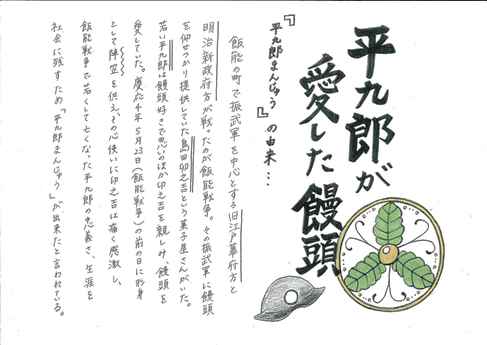 平九郎が
愛した饅頭
『平九郎まんじゅう』の由来…
飯能の町で振武軍を中心とする旧江戸幕府方と
明治新政府方が戦ったのが飯能戦争。その振武軍に饅頭
を仰せつかり提供していた島田卯之吉という菓子屋さんがいた。
若い平九郎は饅頭好きで思いのほか卯之吉を親しみ、饅頭を
愛していた。慶応4年5月23日(飯能戦争)の前の日に形身
として陣笠を供え、その心使いに卯之吉は痛く感激し、
飯能戦争で若くして亡くなった平九郎の忠義さ、生涯を
社会に残すため「平九郎まんじゅう」が出来たと言われている。